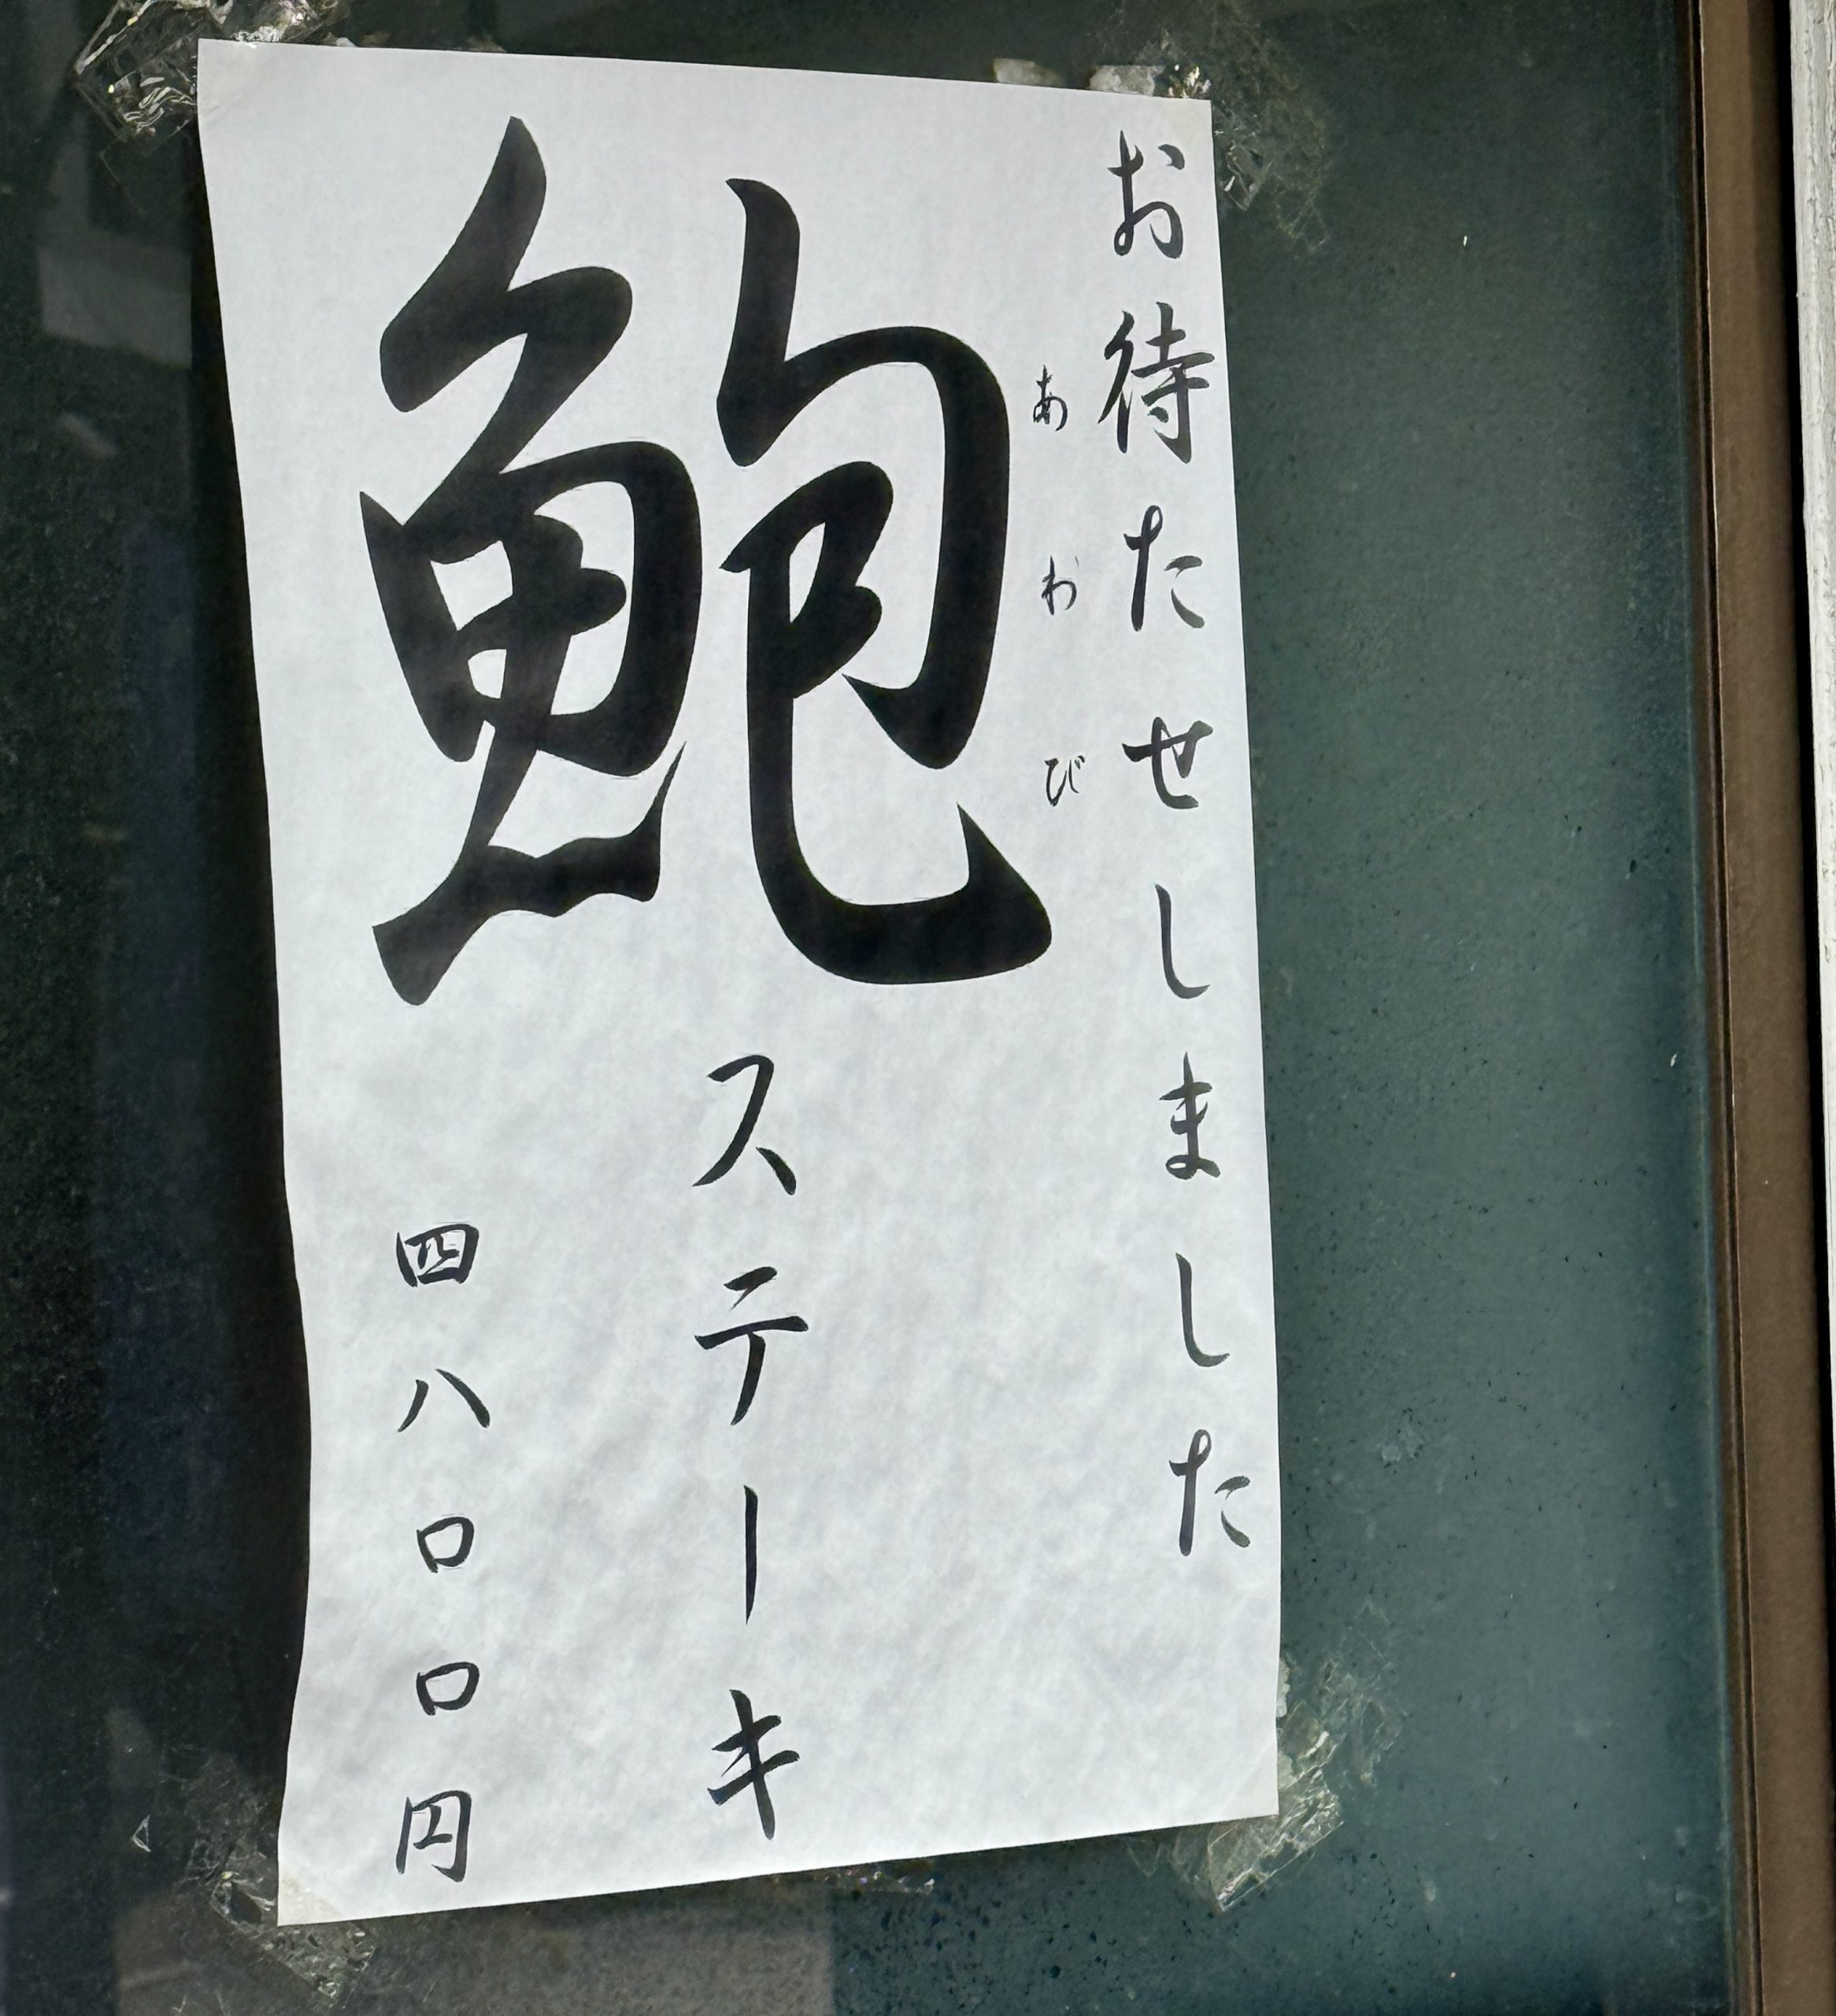 お待たせしました
あわび
鮑ステーキ
四八〇〇円